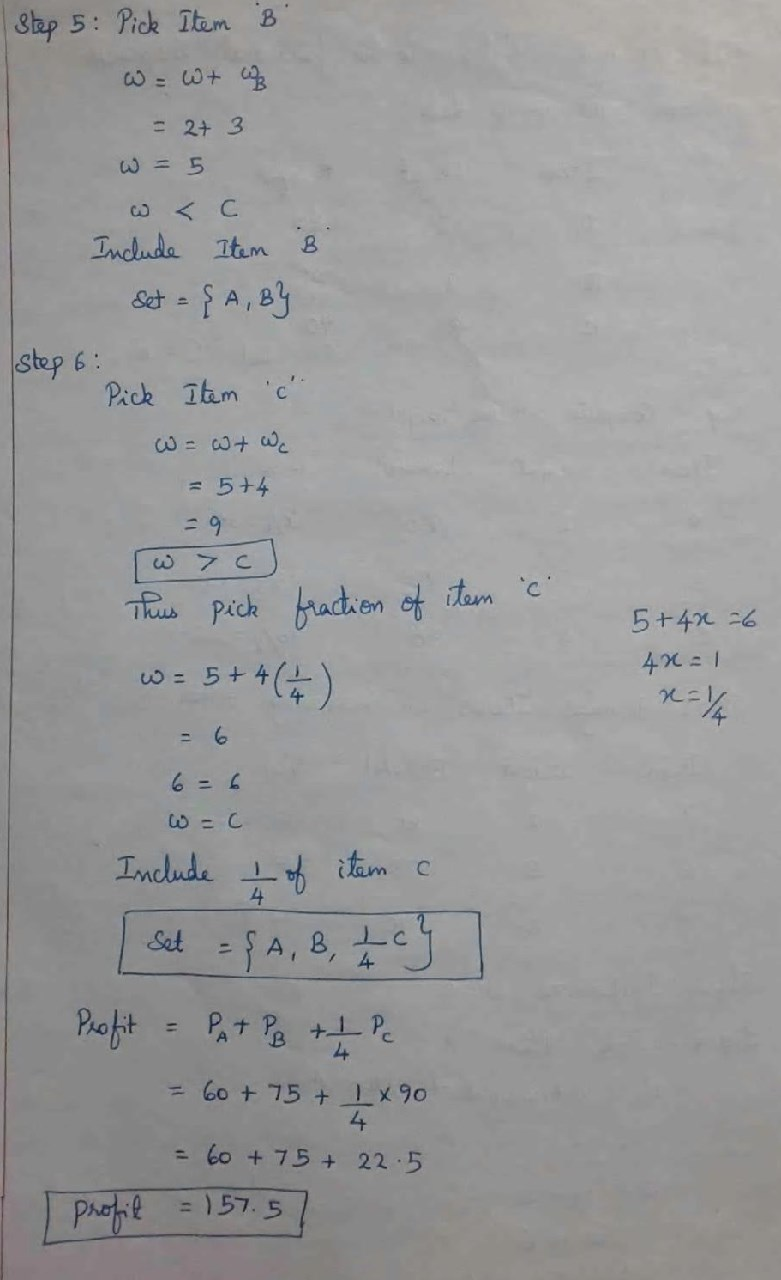 Step 5: Pick Item 'B'
ω = ω + ω_B
= 2 + 3
ω = 5
ω < C
Include Item 'B'
Set = {A, B}
Step 6:
Pick Item 'C'
ω = ω + ω_C
= 5 + 4
= 9
ω > C
Thus pick fraction of item 'C'
5 + 4x = 6
4x = 1
x = 1/4
ω = 5 + 4(1/4)
= 6
6 = 6
ω = C
Include 1/4 of item C
Set = {A, B, 1/4 C}
Profit = P_A + P_B + 1/4 P_C
= 60 + 75 + 1/4 × 90
= 60 + 75 + 22.5
Profit = 157.5